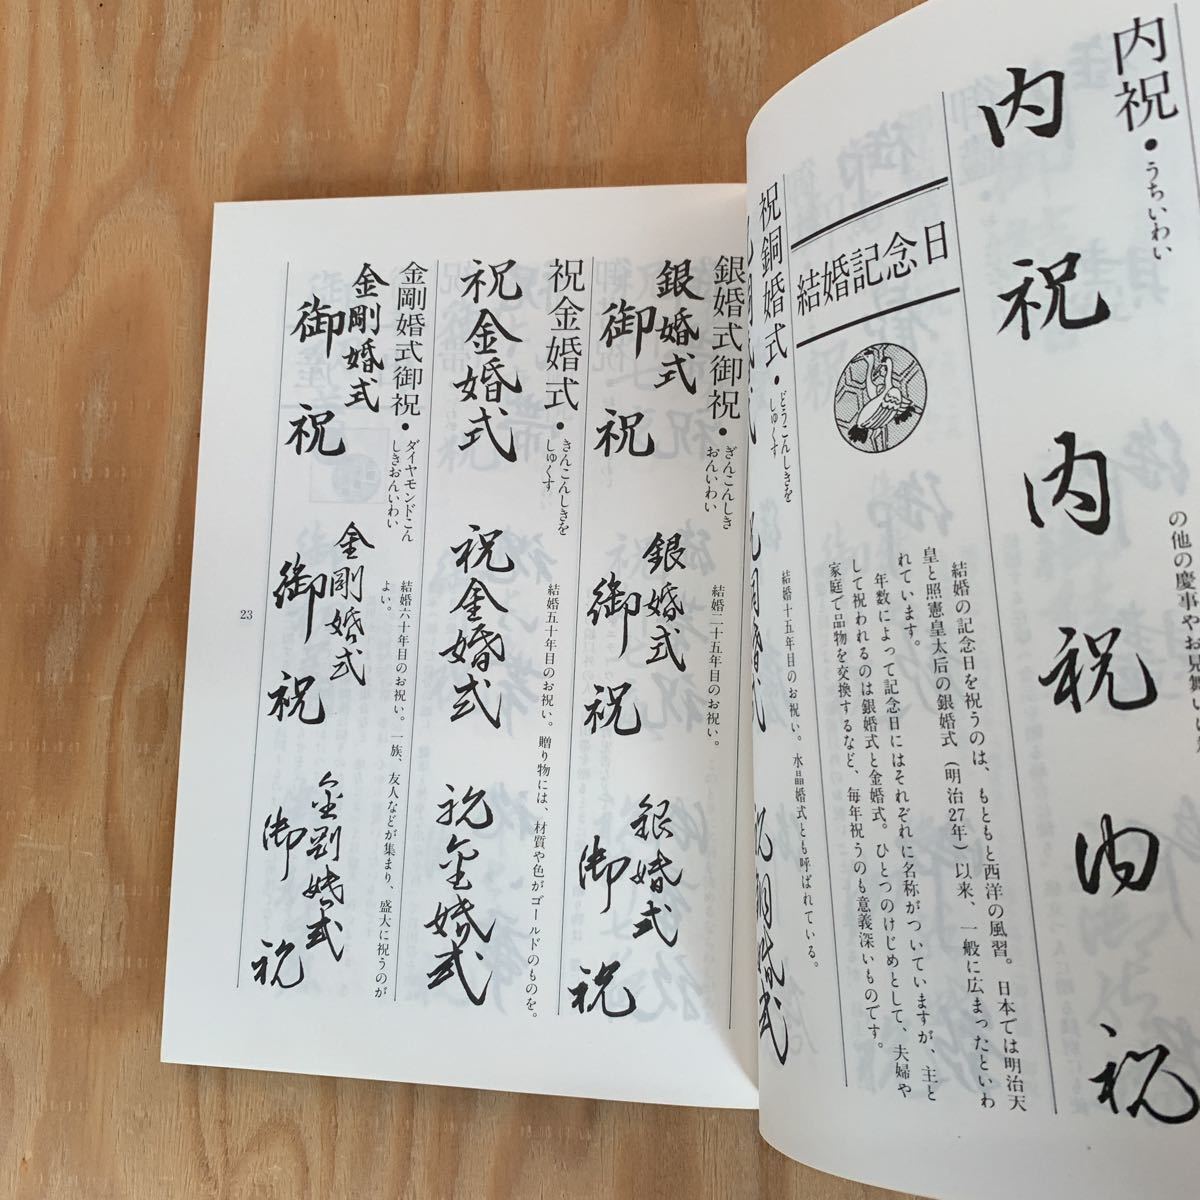 内祝・うちいわい
内祝
内祝
内祝
の他の慶事やお見舞い
結婚記念日
結婚の記念日を祝うのは、もともと西洋の風習。日本では明治天
皇と照憲皇太后の銀婚式(明治27年)以来、一般に広まったといわ
れています。
年数によって記念日にはそれぞれに名称がついていますが、主と
して祝われるのは銀婚式と金婚式。ひとつのけじめとして、夫婦や
家庭で品物を交換するなど、毎年祝うのも意義深いものです。
祝銅婚式・どうこんしきを
しゅくす
結婚十五年目のお祝い。水晶婚式とも呼ばれている。
銀婚式御祝・ぎんこんしき
おんいわい
結婚二十五年目のお祝い。
銀婚式
御祝
銀婚式
御祝
銀婚式
御祝
祝金婚式・きんこんしきを
しゅくす
結婚五十年目のお祝い。贈り物には、材質や色がゴールドのものを。
祝金婚式
祝金婚式
祝金婚式
金剛婚式御祝・ダイヤモンドこん
しきおんいわい
結婚六十年目のお祝い。一族、友人などが集まり、盛大に祝うのが
よい。
金剛婚式
御祝
金剛婚式
御祝
金剛婚式
御祝
23